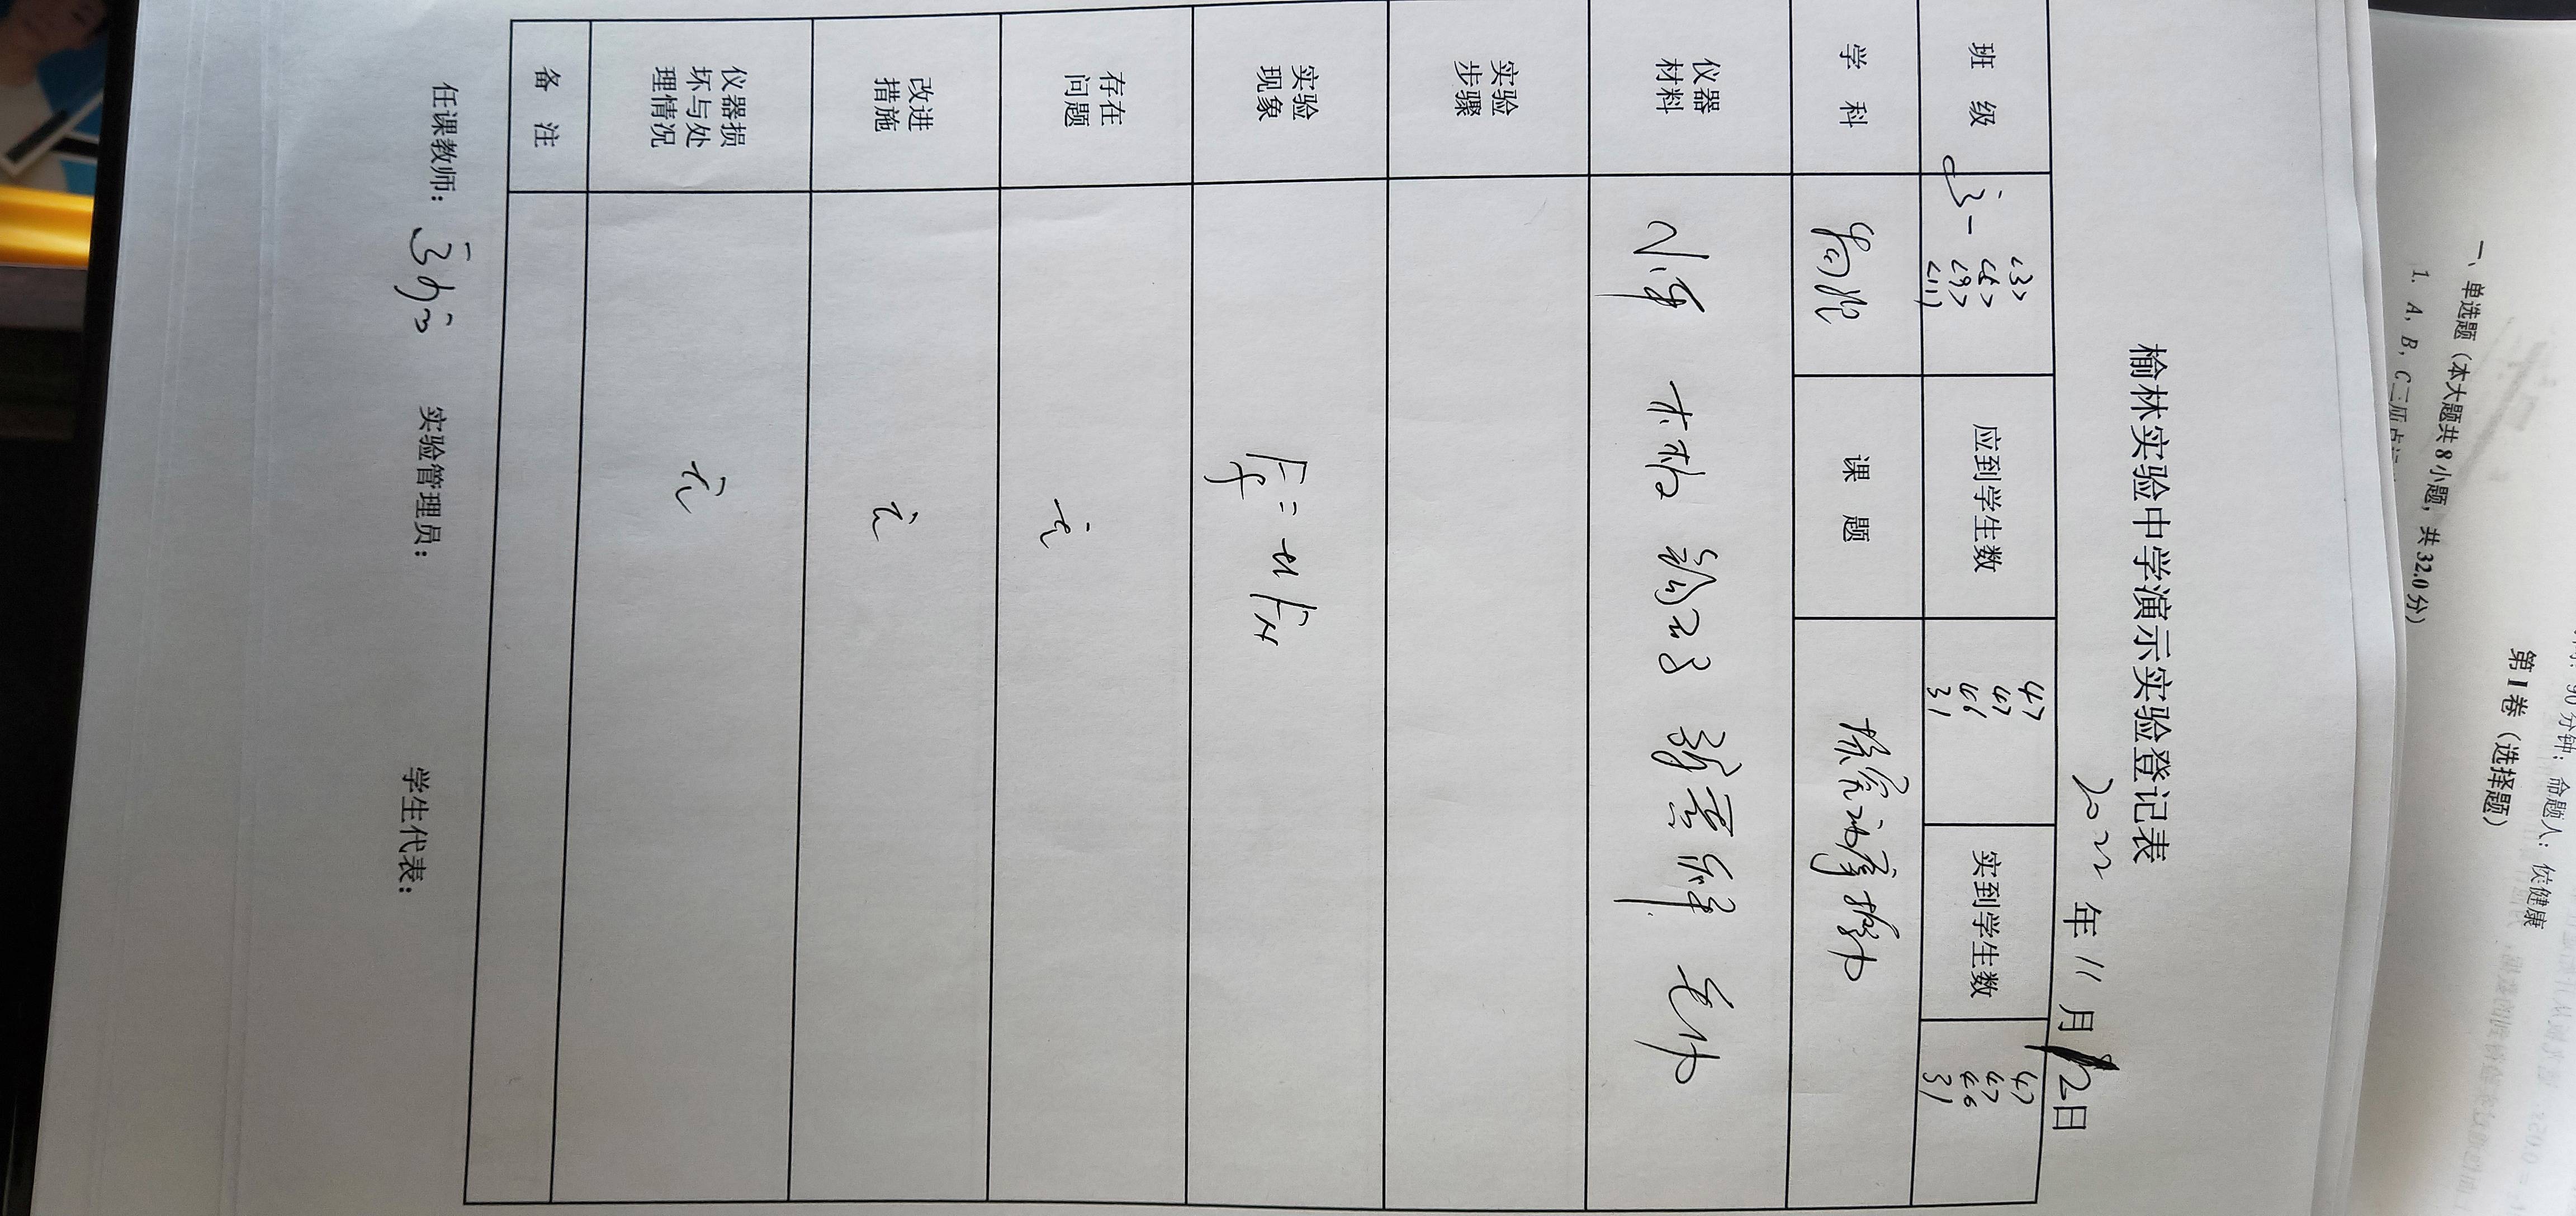 榆林实验中学演示实验登记表
2022 年 11 月 12日
班 级 高一 <3>
<9>
<11>
应到学生数 47
47
46
31
实到学生数 47
47
46
31
学 科 物理 课 题 探究动摩擦力
仪器
材料 小车 木板
实验
步骤
实验
现象 Ff = μFN
存在
问题 无
改进
措施 无
仪器损
坏与处
理情况 无
备 注
任课教师:
实验管理员:
学生代表:
90分钟; 命题人: 侯健康
第I卷(选择题)
一、单选题(本大题共8小题, 共32.0分)
1. A, B, C三